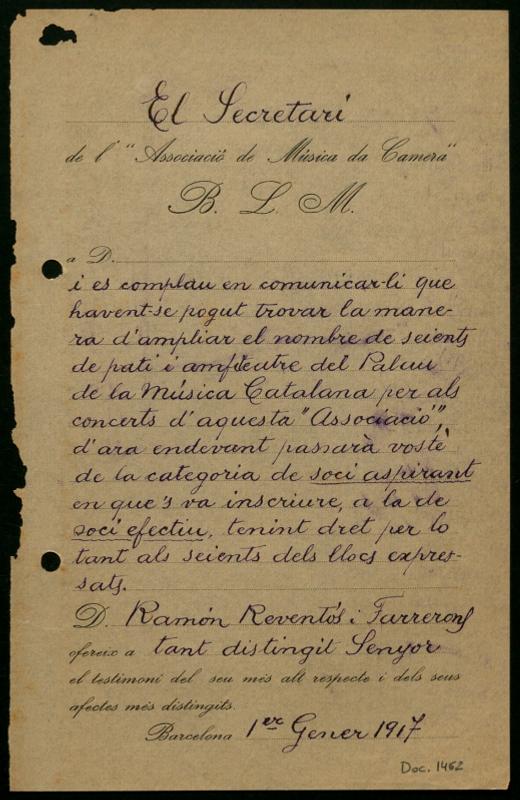 El Secretari
de l' "Associació de Música da Camera"
B. L. M.
a D.
i es complau en comunicar-li que
havent-se pogut trovar la mane-
ra d'ampliar el nombre de seients
de pati i amfiteatre del Palau
de la Música Catalana per als
concerts d'aquesta "Associació",
d'ara endevant passarà vostè
de la categoria de soci aspirant
en que's va inscriure, a la de
soci efectiu, tenint dret per lo
tant als seients dels llocs expres-
sats.
D. Ramón Reventós i Farrerons
ofereix a tant distingit Senyor
el testimoni del seu més alt respecte i dels seus
afectes més distingits.
Barcelona 1er Gener 1917
Doc. 1462